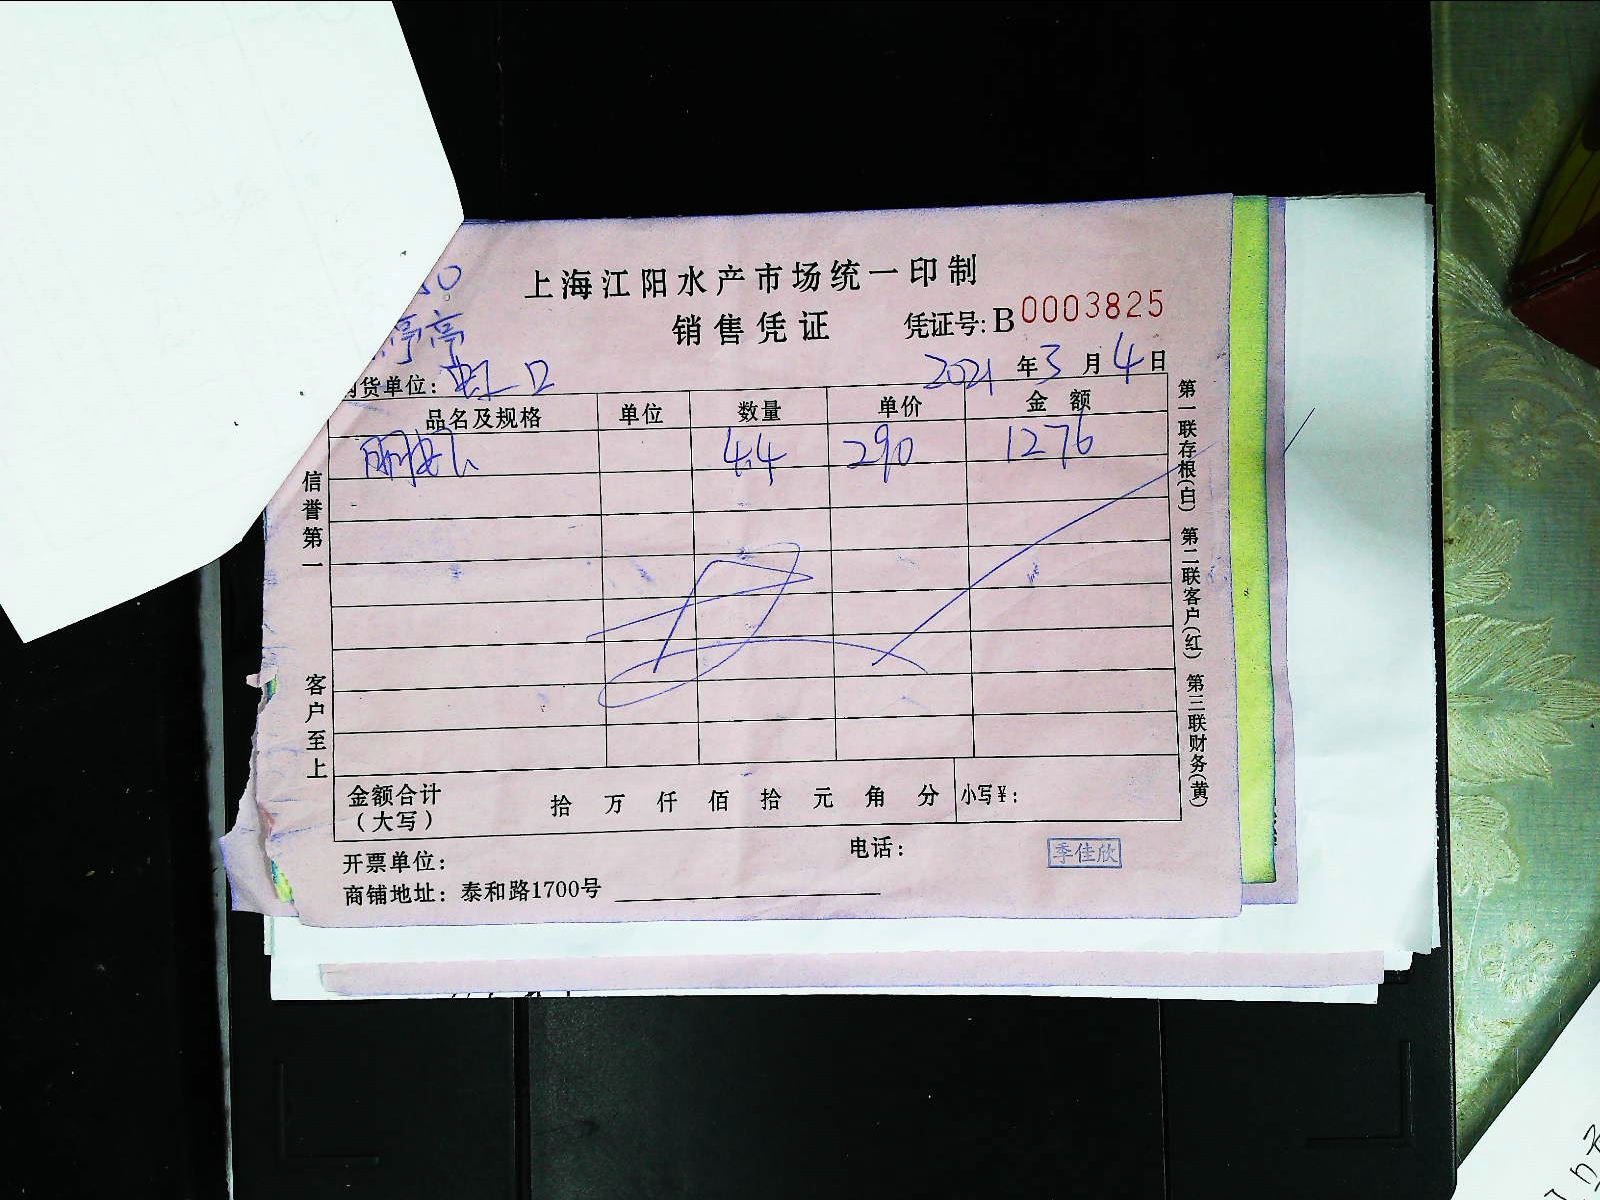 上海江阳水产市场统一印制
销售凭证 凭证号: B 0003825
亭
货单位: 虹口 2021 年 3 月 4 日
品名及规格 单位 数量 单价 金额
4.4 290 1276
信誉第一 客户至上
第一联存根(白) 第二联客户(红) 第三联财务(黄)
金额合计 拾 万 仟 佰 拾 元 角 分 小写¥:
(大写)
开票单位: 电话: 季佳欣
商铺地址: 泰和路1700号